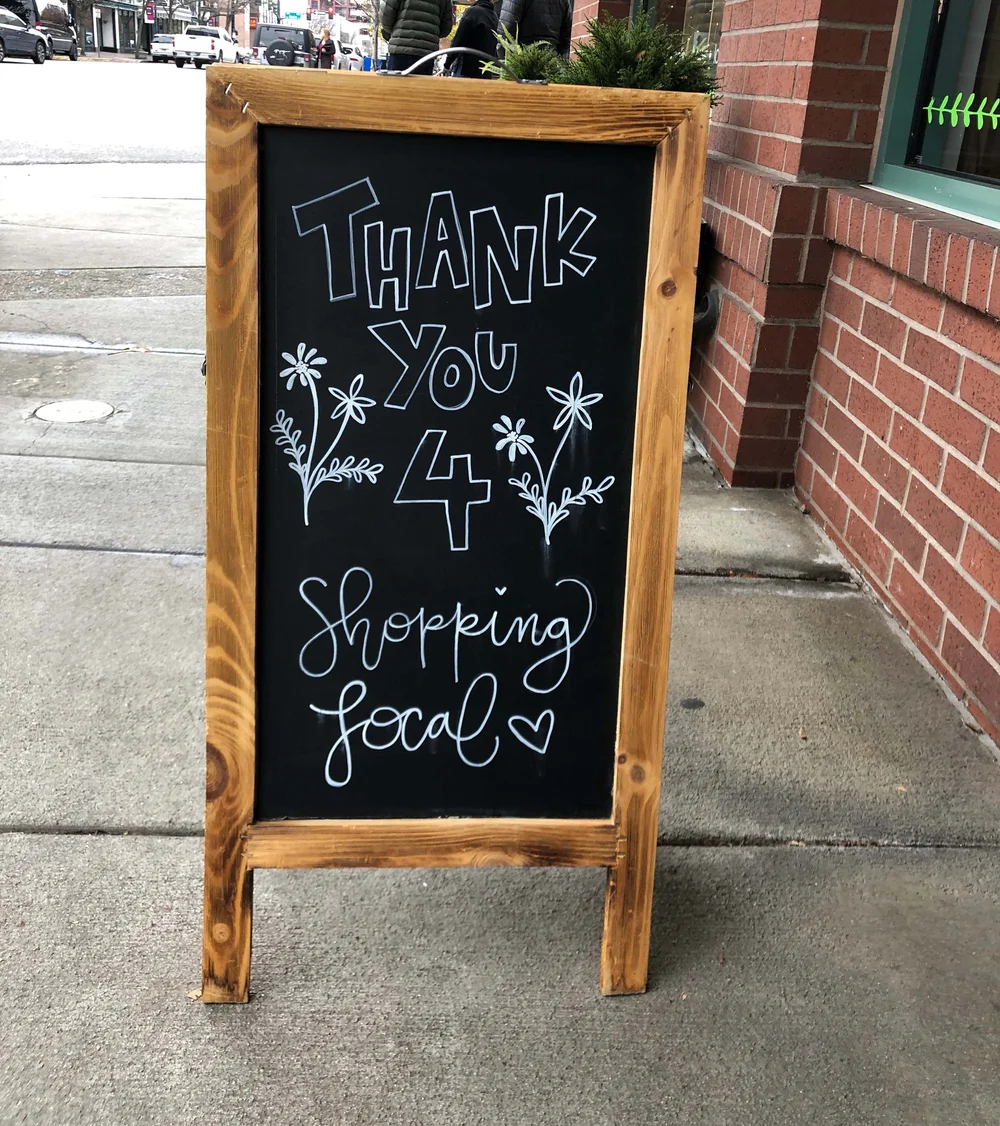 THANK
YOU
4
Shopping
Local